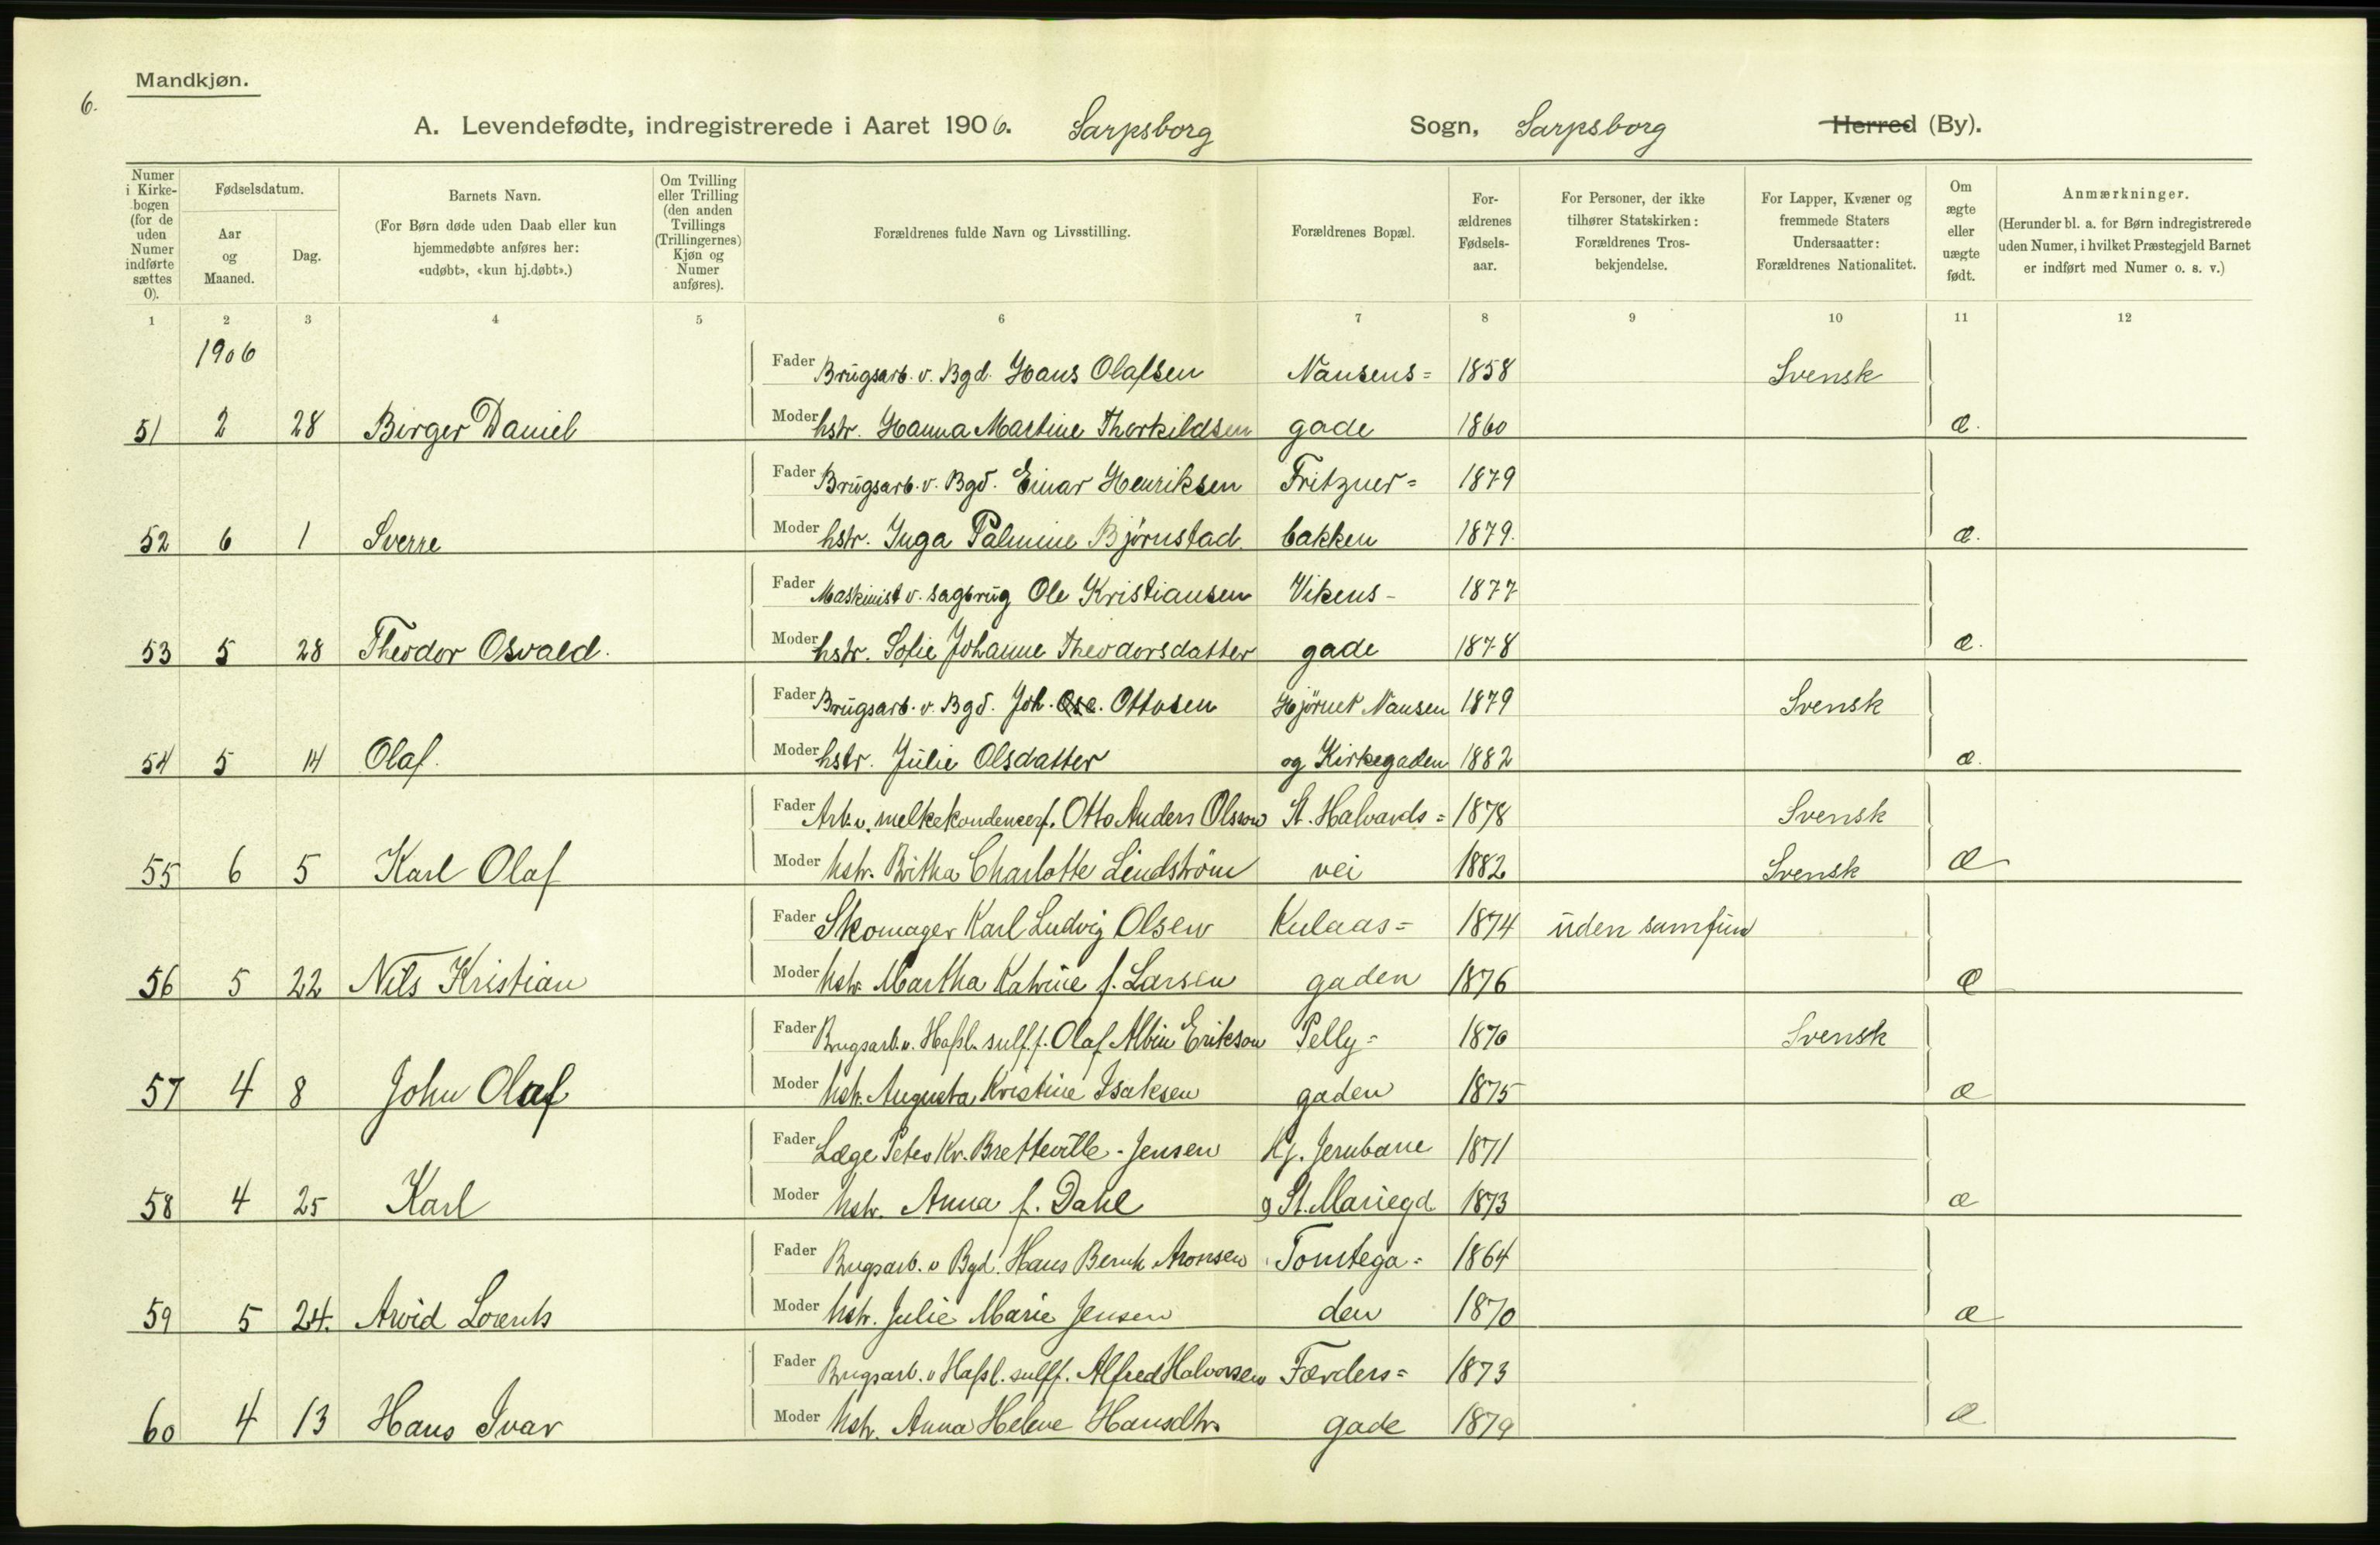 Mandkjøn.
6.
A. Levendefødte, indregistrerede i Aaret 1906. Sarpsborg Sogn, Sarpsborg Herred (By).
Numer i Kirke-bogen (for de uden Numer indførte sættes 0).
Fødselsdatum.
Aar og Maaned.
Dag.
Barnets Navn.
(For Børn døde uden Daab eller kun hjemmedøbte anføres her: «udøbt», «kun hj.døbt».)
Om Tvilling eller Trilling (den anden Tvillings (Trillingernes) Kjøn og Numer anføres).
Forældrenes fulde Navn og Livsstilling.
Forældrenes Bopæl.
For-ældrenes Fødsels-aar.
For Personer, der ikke tilhører Statskirken: Forældrenes Tros-bekjendelse.
For Lapper, Kvæner og fremmede Staters Undersaatter: Forældrenes Nationalitet.
Om ægte eller uægte født.
Anmærkninger.
(Herunder bl. a. for Børn indregistrerede uden Numer, i hvilket Præstegjeld Barnet er indført med Numer o. s. v.)
1 2 3 4 5 6 7 8 9 10 11 12
1906
Fader Brugsarb. v. Bgd. Hans Olafsen Nansens= 1858 Svensk
51 2 28 Birger Daniel Moder hstr. Hanna Martine Thorkildsen gade 1860 æ.
Fader Brugsarb. v. Bgd. Einar Henriksen Fritzner= 1879
52 6 1 Sverre Moder hstr. Inga Palmine Bjørnstad. bakken 1879. æ.
Fader Maskinist v. sagbrug Ole Kristiansen Vikens- 1877
53 5 28 Theodor Osvald. Moder hstr. Sofie Johanne Theodorsdatter gade 1878 æ.
Fader Brugsarb. v. Bgd. Joh. Osc. Ottosen Hjørnet Nansen 1879 Svensk
54 5 14 Olaf. Moder hstr. Julie Olsdatter og Kirkegaden 1882 æ.
Fader Arb. v. melkekondenserf. Otto Anders Olsson St. Halvards= 1878 Svensk
55 6 5 Karl Olaf Moder hstr. Britha Charlotte Lindström vei 1882 Svensk æ
Fader Skomager Karl Ludvig Olsen Kulaas= 1874 uden samfun
56 5 22 Nils Kristian Moder hstr. Martha Katrine f. Larsen gaden 1876 æ
Fader Brugsarb. v. Hafsl. sulf.f. Olaf Albin Erikson Pelly= 1870 Svensk
57 4 8 John Olaf Moder hstr. Augusta Kristine Isaksen gaden 1875 æ
Fader Læge Peter Kr. Bretteville-Jensen Hj. Jernbane 1871
58 4 25 Karl Moder hstr. Anna f. Dahl g St. Mariegd 1873 æ
Fader Brugsarb. v Bgd. Hans Bernh Aronsen Tomtega= 1864
59 5 24. Arvid Lorents Moder hstr. Julie Marie Jensen den 1870 æ
Fader Brugsarb. v Hafsl. sulff. Alfred Halvorsen Færders= 1873
60 4 13 Hans Ivar Moder hstr. Anna Helene Hansdtr. gade 1879 æ